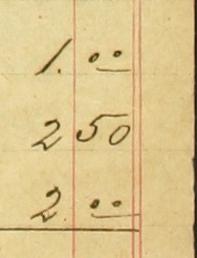 1.00
2 50
2.00